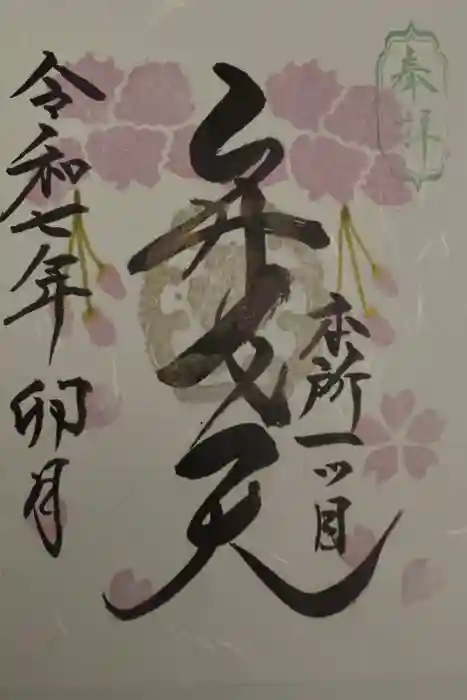 奉拝
本所一ツ目
弁天
令和七年 卯月